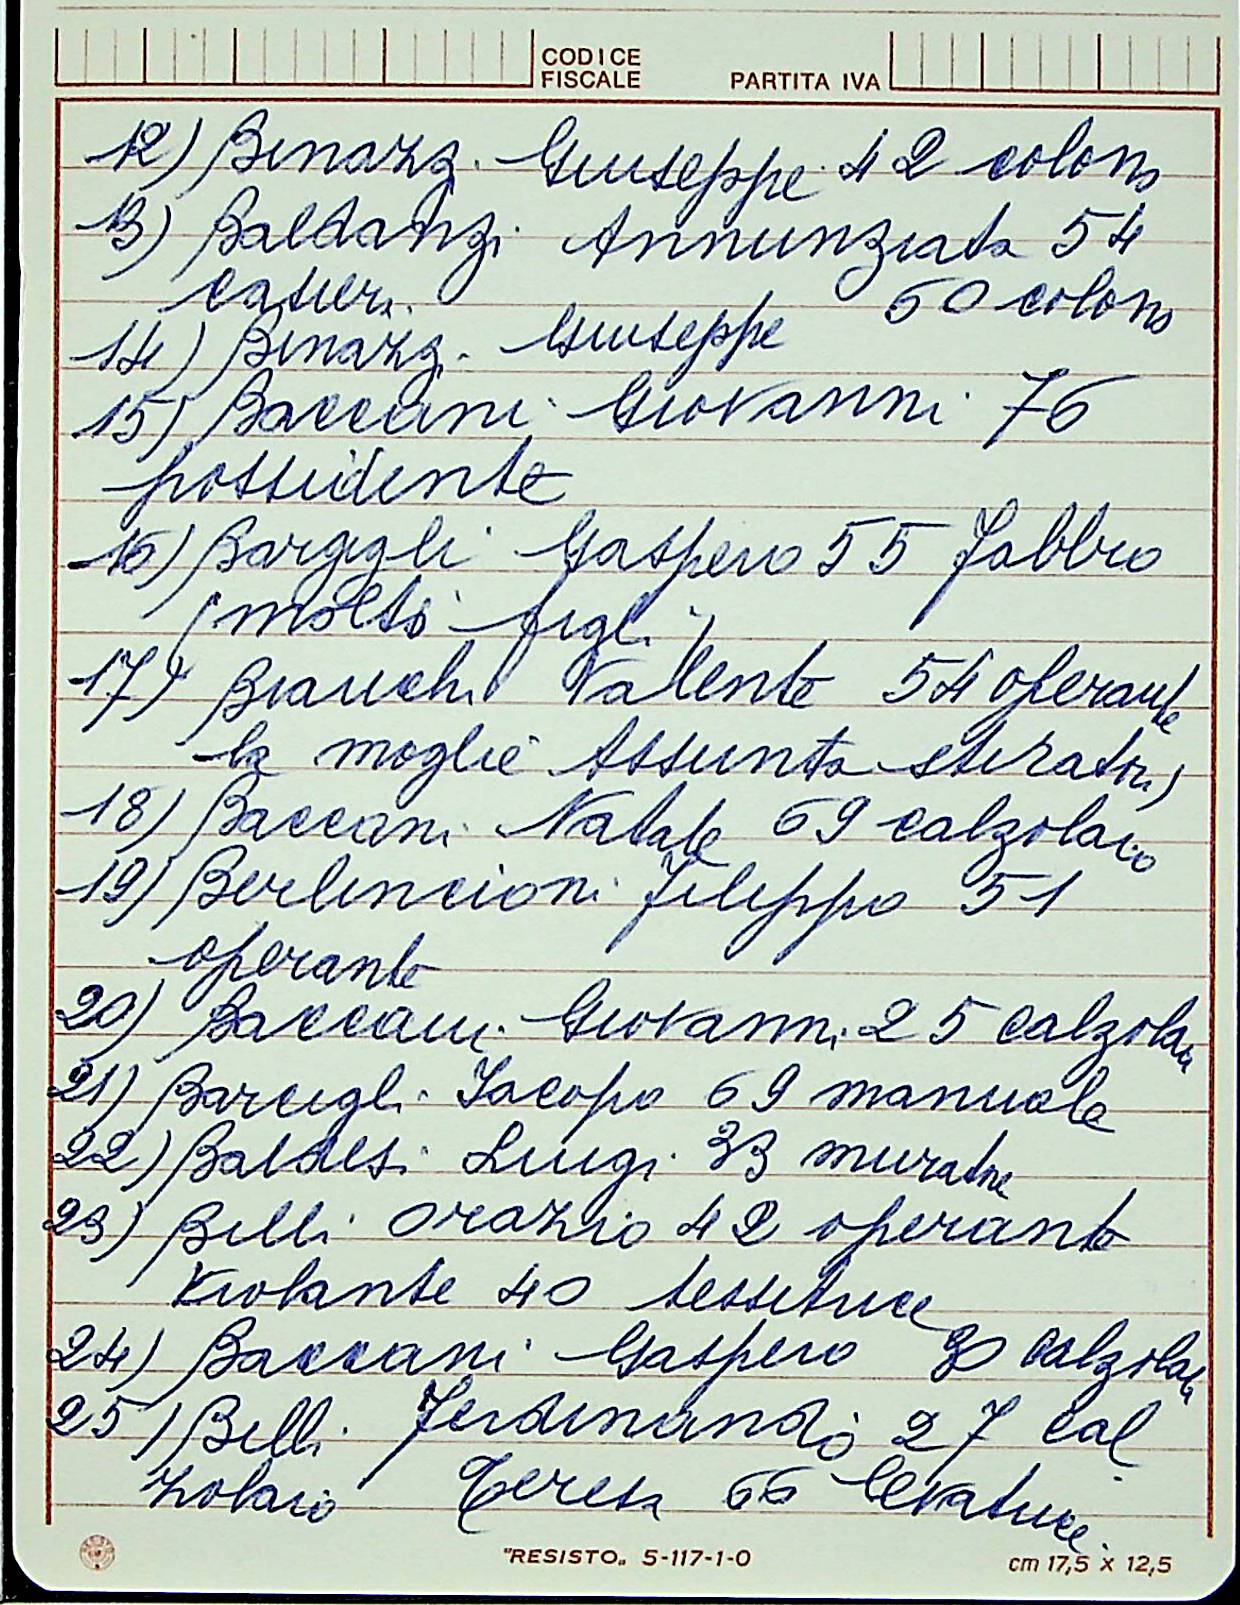 CODICE
FISCALE PARTITA IVA
12) Binazzi Giuseppe 42 colono
13) Baldanzi Annunziata 54
60 colono
14) Binazzi Giuseppe
15) Baccani Giovanni 76
possidente
16) Bargigli Gaspero 55 fabbro
(molti figli)
17) Bianchi Valente 54 operante
la moglie Assunta stiratri)
18) Baccani Natale 69 calzolaio
19) Berlincioni Fileppo 51
operante
20) Baccani Giovanni 25 calzolaio
21) Barcigli Iacopo 69 manuale
22) Baldesi Luigi 33 muratore
23) Billi Orazio 42 operante
Violante 40 tessitrice
24) Baccani Gaspero 30 calzolaio
25) Billi Ferdinando 27 cal
zolaio Teresa 66 levatrice
"RESISTO„ 5-117-1-0 cm 17,5 x 12,5